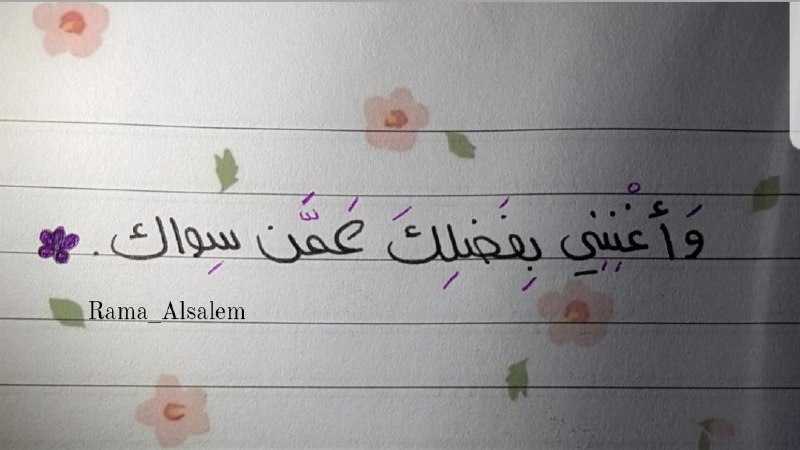 وَأَغْنِنِي بِفَضلِكَ عَمَّن سِواك .
Rama_Alsalem